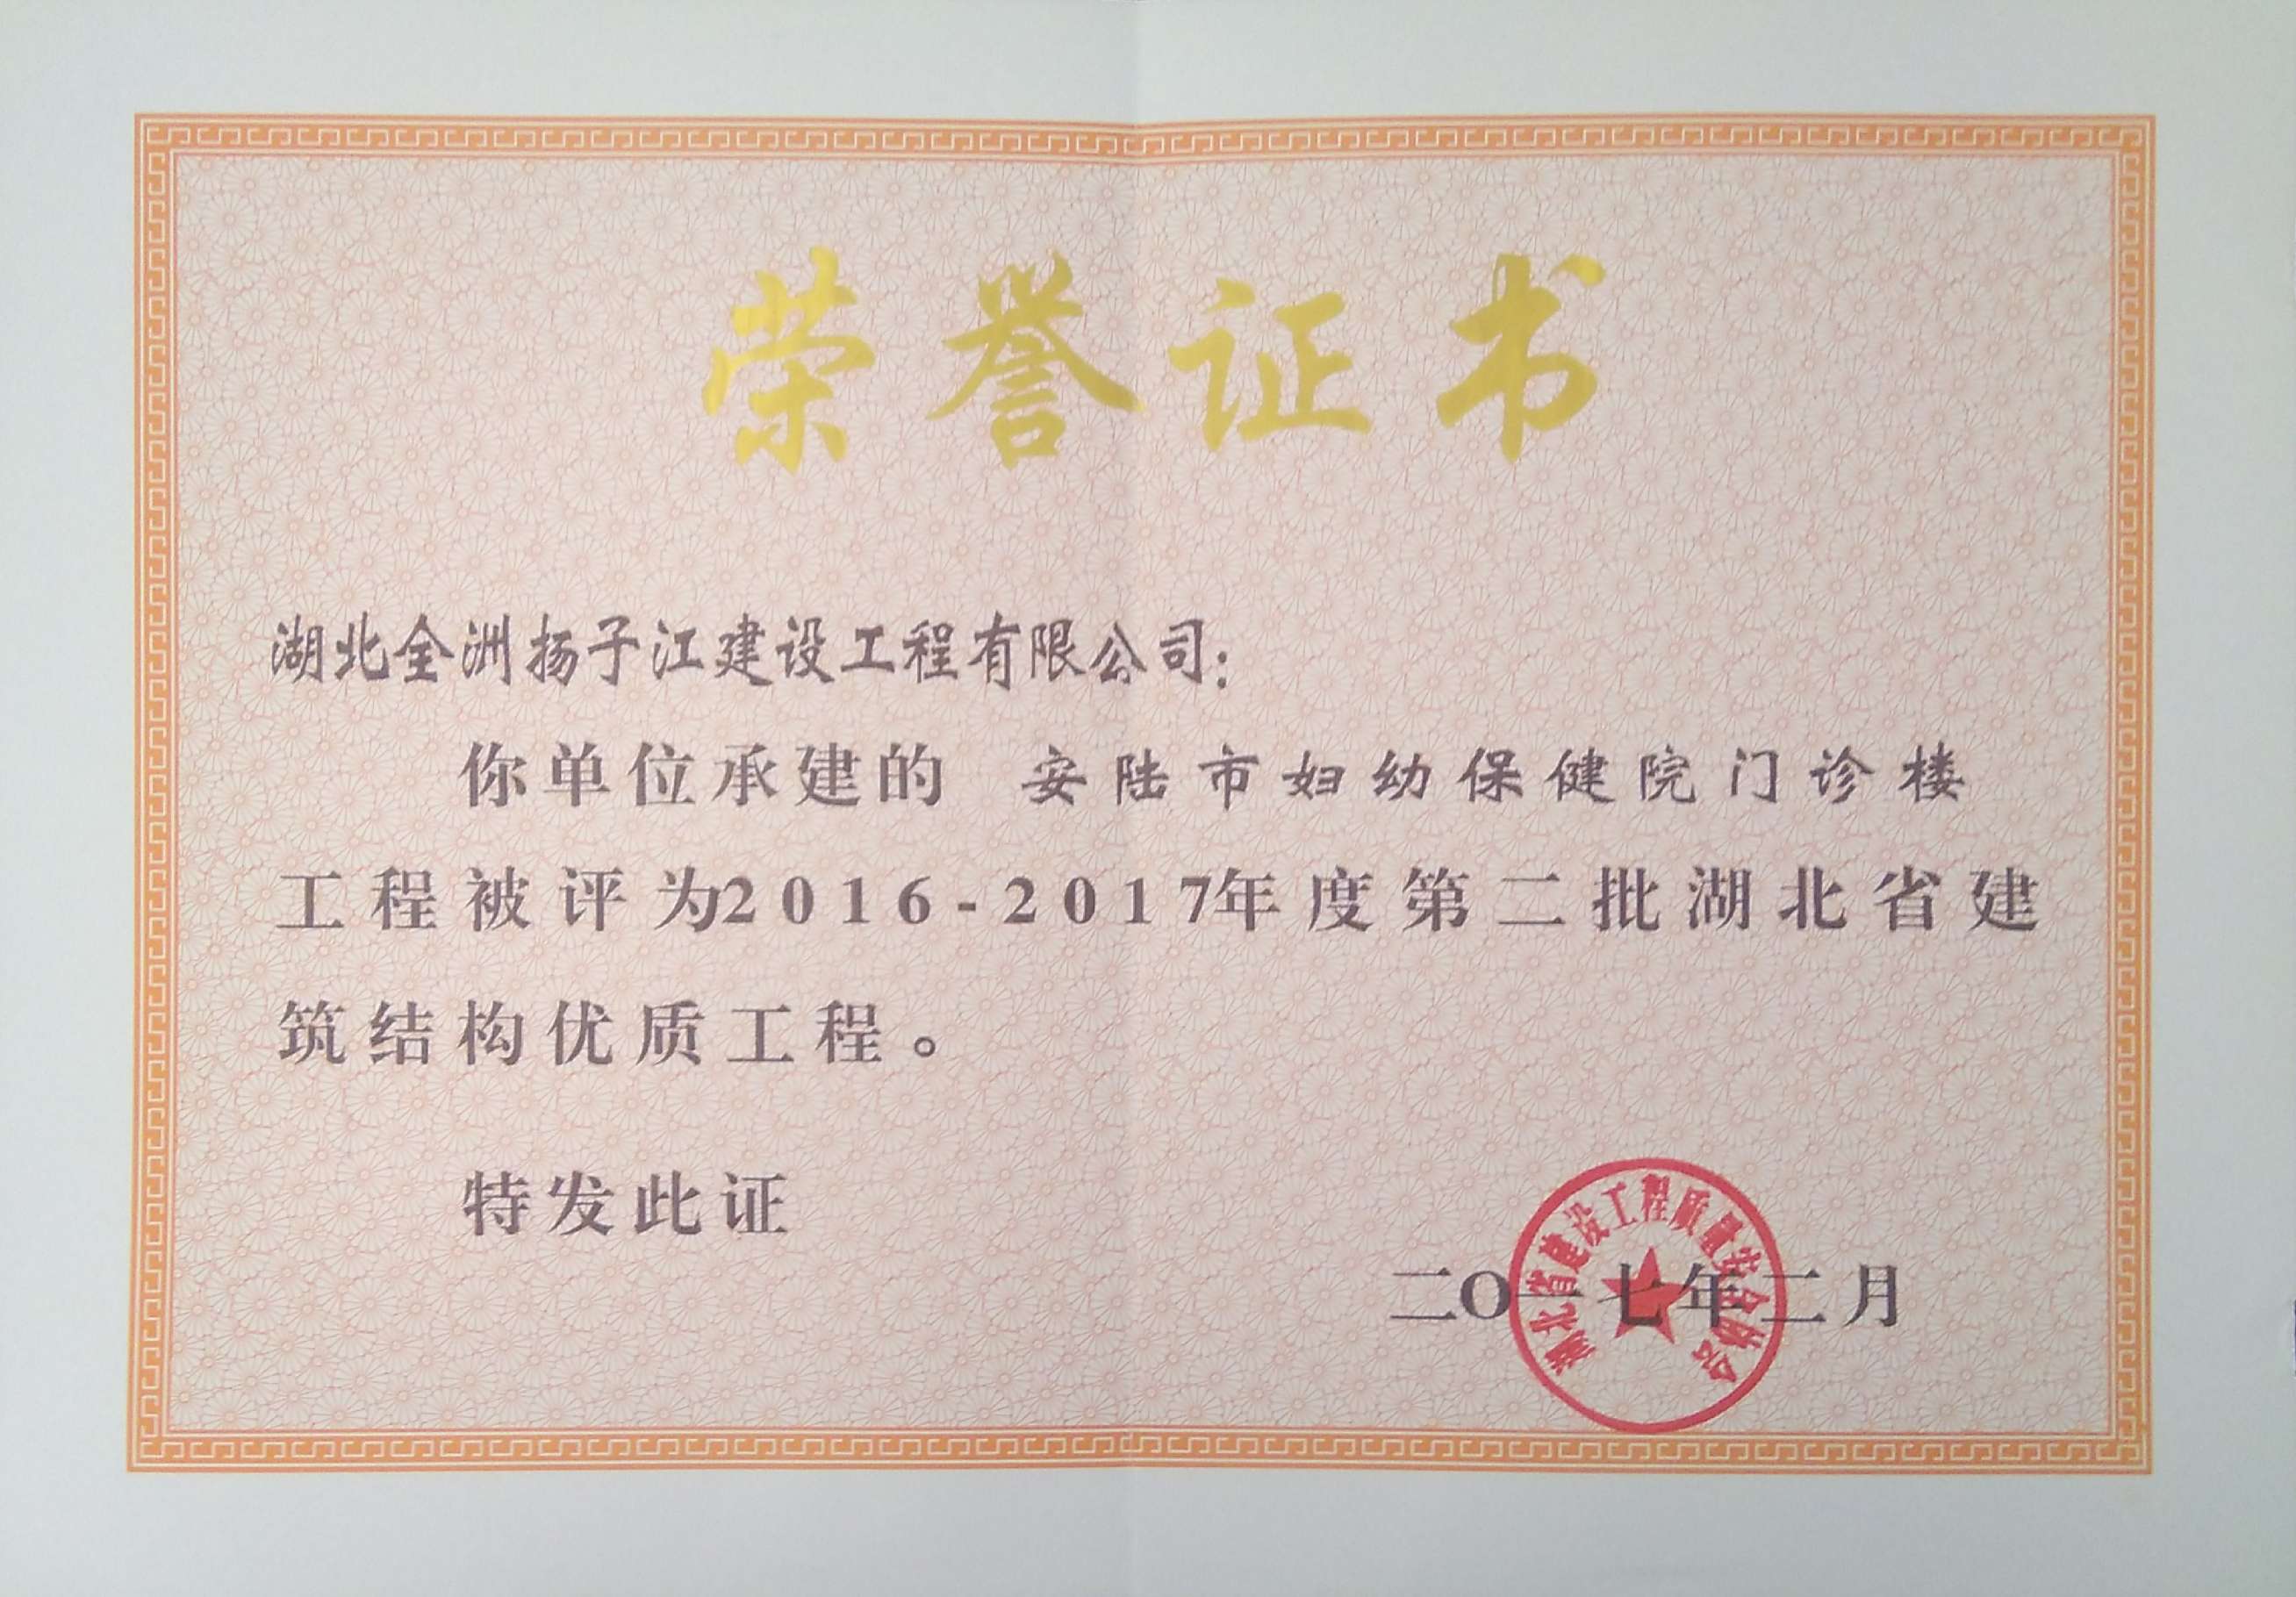 荣誉证书
湖北全洲扬子江建设工程有限公司:
你单位承建的 安陆市妇幼保健院门诊楼
工程被评为2016-2017年度第二批湖北省建
筑结构优质工程。
特发此证
二〇一七年二月
湖北省建设工程质量安全协会